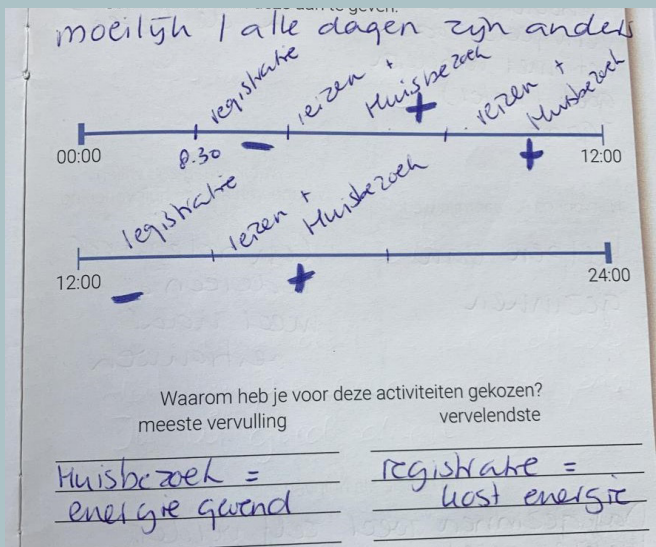 moeilijk / alle dagen zijn anders
registratie
reizen +
Huisbezoek
reizen +
Huisbezoek
+
00:00
8.30
-
+
12:00
registratie
reizen +
Huisbezoek
12:00
-
+
24:00
Waarom heb je voor deze activiteiten gekozen?
meeste vervulling
vervelendste
Huisbezoek =
energie gevend
registratie =
kost energie